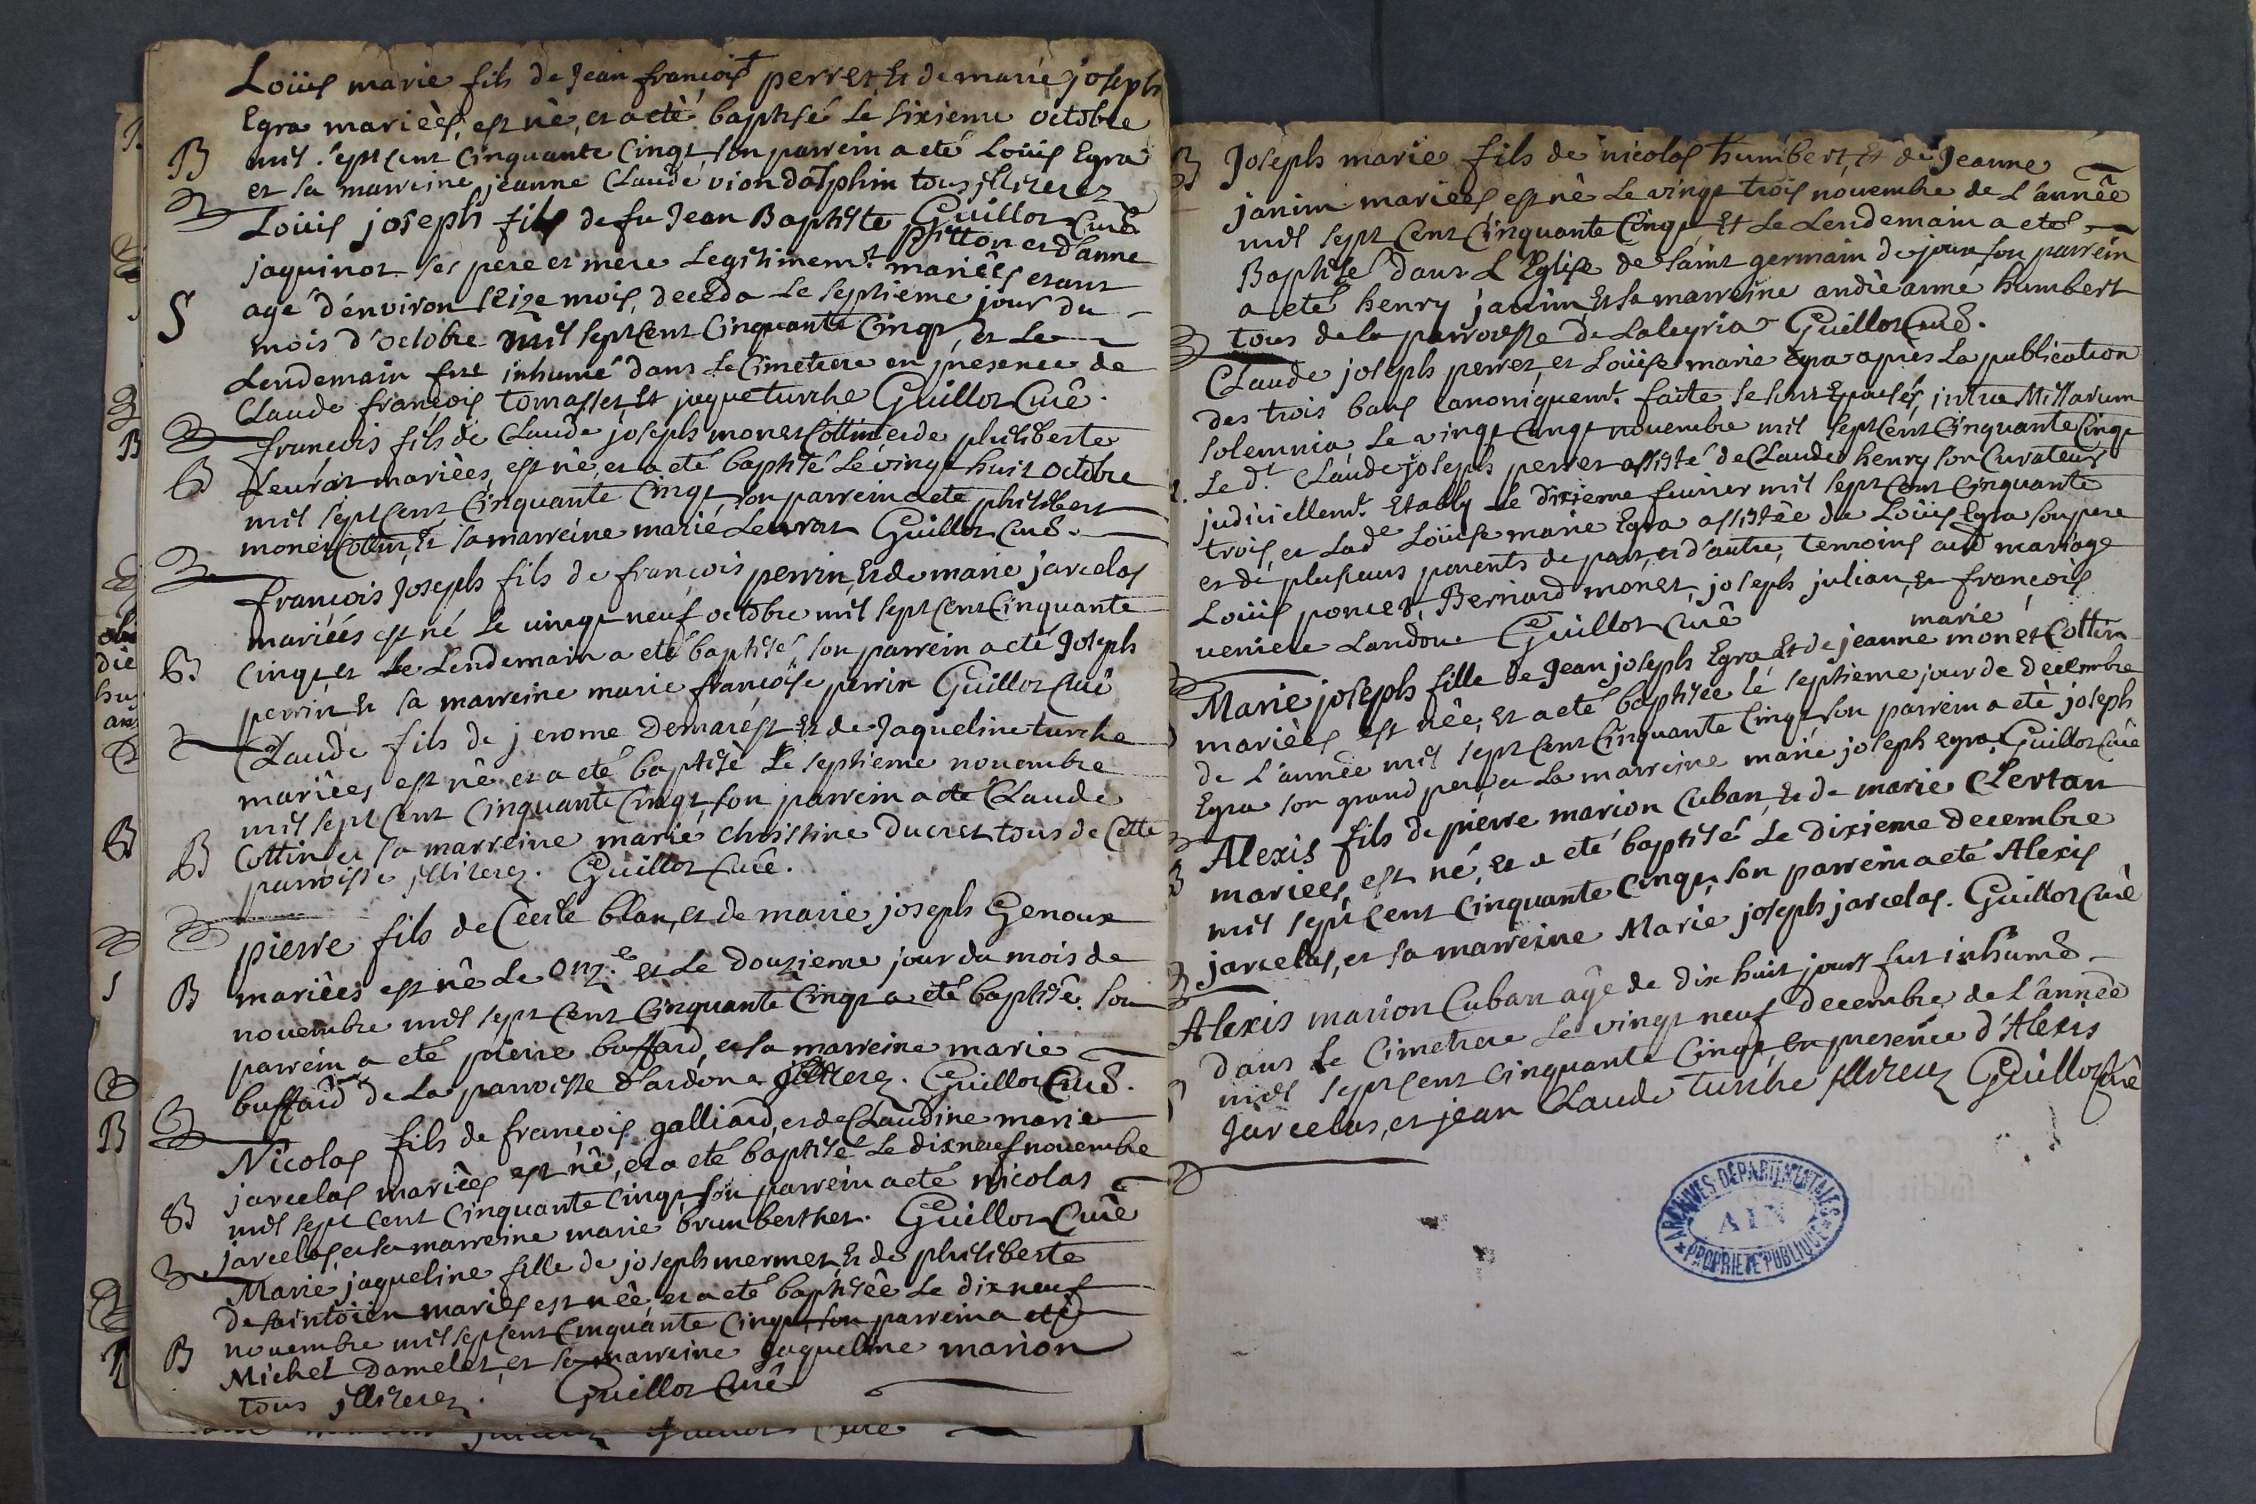 Loüis marie fils de Jean françois perret, et de marie joseph
Egra mariéés, est né, et a eté baptisé Le sixieme octobre
B mil sept cent Cinquante Cinq, son parrein a eté Loüis Egra
et sa marreine jeanne Claude viondalphin tous jllitérez
Guillot Curé
Loüis joseph fils de fu Jean Baptiste pitton et d'anne
jaquinot ses pere et mere Legitimemt. mariéés etant
agé d'énviron seize mois, deceda Le septieme jour du
S mois d'octobre mil sept Cent Cinquante Cinq, et Le
Lendemain fut inhumé dans Le Cimetiere en presence de
Claude françois tomasset, et jaque turche Guillot Curé.
françois fils de Claude joseph monet Cottin et de philiberte
B Leurat mariéés, est né, et a eté baptisé Le vingt huit octobre
mil sept Cent Cinquante Cinq, son parrein a eté philibert
monet Cottin, et sa marreine marie Leurat Guillot Curé.
françois Joseph fils de françois perrin, et de marie jarcelas
mariéés est né Le vingt neuf octobre mil sept Cent Cinquante
B Cinq, et Le Lendemain a eté baptisé son parrein a eté Joseph
perrin, et sa marreine marie françoise perrin Guillot Curé
Claude fils de jerome Demarést et de Jaqueline turche
mariéés est né et a eté baptisé Le septieme novembre
mil sept Cent Cinquante Cinq, son parrein a eté Claude
B Cottin, et sa marreine marie christine ducret tous de Cette
parroisse jllitérez. Guillot Curé.
pierre fils de Ceesle blan, et de marie joseph Genoux
B mariéés est né Le onz.e et Le Douzieme jour du mois de
novembre mil sept Cent Cinquante Cinq a eté baptisé. son
parrein a eté pierre buffard, et sa marreine marie
buffard de La parroisse d'ardon jllitérez. Guillot Curé.
Nicolas fils de françois galliard, et de Claudine marie
jarcelas mariéés est né, et a eté baptisé Le dixneuf novembre
B mil sept Cent Cinquante Cinq, son parrein a eté nicolas
jarcelas, et sa marreine marie brunberthet. Guillot Curé
Marie jaqueline fille de joseph mermet, et de philiberte
De saintoien mariés est néé, et a eté baptiséé Le dix neuf
novembre mil sept Cent Cinquante Cinq, son parrein a eté
B Michel Damelet, et sa marreine Jaqueline marion
tous jllitérez. Guillot Curé
B Joseph marie fils de nicolas humbert, et de Jeanne
janin mariéés est né Le vingt trois novembre de L'année
mil sept Cent Cinquante Cinq, et Le Lendemain a eté
Baptisé dans L'Eglise de Saint germain de joux, son parrein
a eté henry janin, et sa marreine andréanne humbert
tous de la parroisse de Laleyria Guillot Curé.
Claude joseph perret, et Loüise marie Egra après La publication
des trois bans Canoniquemt. faite se sont Epousés, intra Missarum
solemnia, Le vingt Cinq novembre mil sept Cent Cinquante Cinq
Le d.t Claude joseph perret assisté de Claude henry son Curateur
judiciellemt. Etably Le dixieme feurier mil sept Cent Cinquante
trois, et Lad.e Loüise marie Egra assistée de Loüis Egra son pere
et de plusieurs parents de part, et d'autre, temoins aud mariage
Loüis poncet, Bernard monet, joseph julian, et françois
veniere Landou Guillot Curé
marie
Marie joseph fille de Jean joseph Egra et de jeanne monet Cottin
mariéés est néé, et a eté baptiséé lé septieme jour de décembre
de L'année mil sept Cent Cinquante Cinq, son parrein a eté joseph
Egra son grand pere, et La marreine marie joseph egra, Guillot Curé
B Alexis fils de pierre marion Cuban, et de marie Clertan
mariees, est né, et a eté baptisé Le dixieme decembre
mil sept Cent Cinquante Cinq, son parrein a eté Alexis
jarcelas, et sa marreine Marie joseph jarcelas. Guillot Curé
Alexis marion Cuban agé de dix huit jours fut inhumé
dans Le Cimetiere Le vingt neuf decembre, de L'année
mil sept Cent Cinquante Cinq, en presence d'Alexis
jarcelas, et jean Claude turche jllitérez Guillot Curé
ARCHIVES DEPARTEMENTALES
AIN
PROPRIETE PUBLIQUE